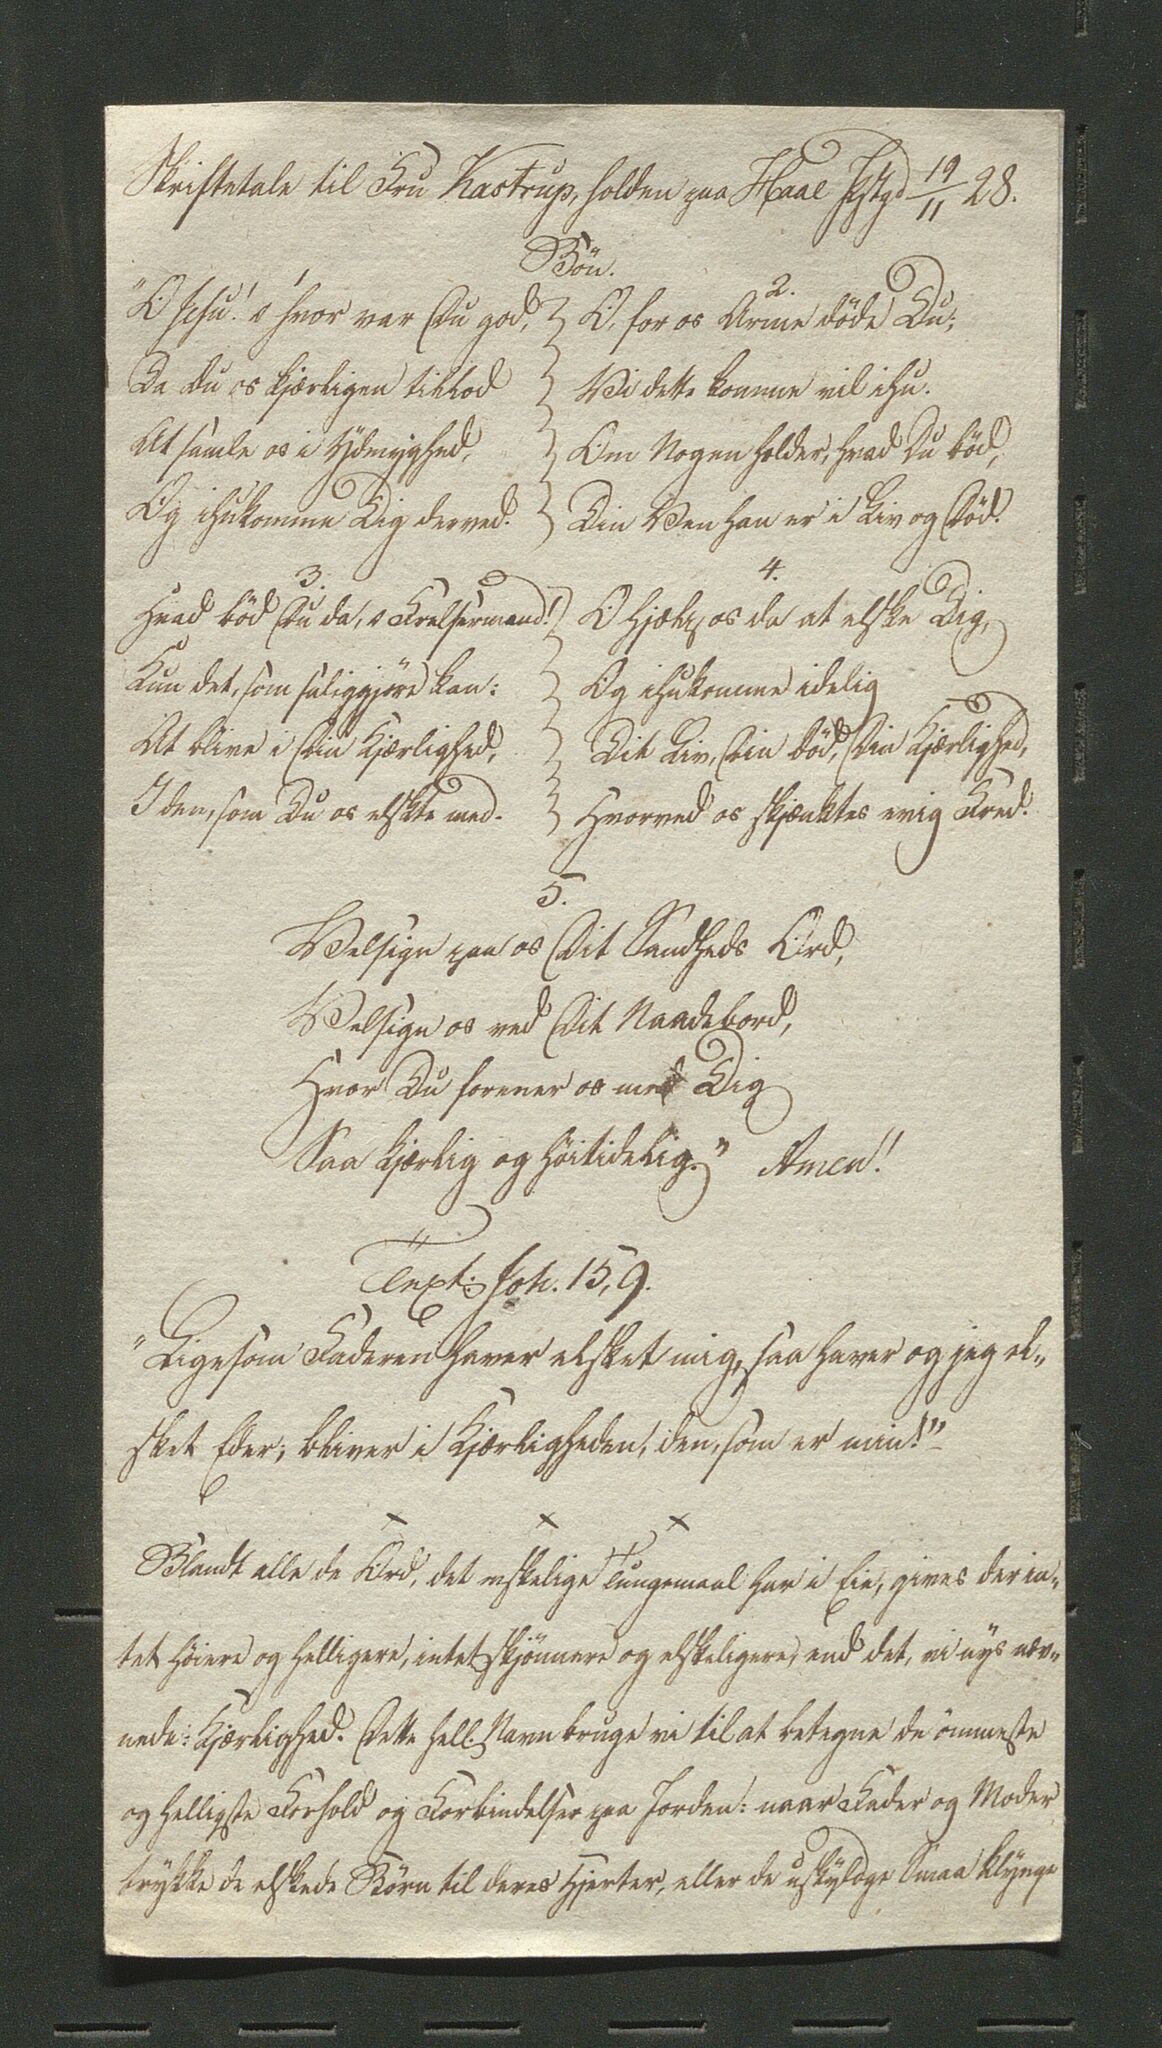 Skriftetale til Fru Kastrup, holden paa Haae Pstgd 19/11 28.
Bön.
1
"O Jesu! o hvor var Du god,
Da Du os kjærligen tillod
At samle os i Ydmyghed,
Og ihukomme Dig derved.
2.
O, for os Arme döde Du;
Vi dette komme vil ihu.
Om Nogen holder, hvad Du böd,
Din Ven han er i Liv og Död.
3.
Hvad böd Du da, o Frelsermand!
Kun det, som saliggjöre kan:
At blive i Din Kjærlighed,
I den, som Du os elskte med.
4.
O hjælp os da at elske Dig,
Og ihukomme idelig
Dit Liv, Din Död, Din Kjærlighed,
Hvorved os skjænktes evig Fred.
5.
Velsign paa os Dit Sandheds Ord,
Velsign os ved Dit Naadebord,
Hvor Du forener os med Dig
Saa kjærlig og höitidelig." Amen!
Text: Joh. 15, 9.
"Ligesom Faderen haver elsket mig, saa haver og jeg el-
sket Eder; bliver i Kjærligheden, den, som er min!"
x x x
Blandt alle de Ord, det mskelige Tungemaal har i Eie, gives der in-
tet höiere og helligere, intet skjönnere og elskeligere, end det, vi nys næv-
nede: Kjærlighed. Dette hell. Navn bruge vi til at betegne de ömmeste
og helligste Forhold og Forbindelser paa Jorden: naar Fader og Moder
trykke de elskede Börn til deres Hjerter, eller de uskyldige Smaa klynge